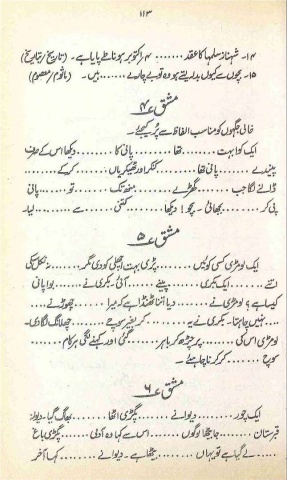 ۱۱۳
۱۴۔ شہناز سلمہا کا عقد ........ ۴ اکتوبر ہونا طے پایا ہے۔ (تاریخ / بتاریخ)
۱۵۔ بچوں سے کیوں بدلہ لیتے ہو وہ تو بے چارے ...... ہیں۔ (معصوم)
مشق ۴
خالی جگہوں کو مناسب الفاظ سے پُر کیجئے۔
ایک کوا بہت ........ تھا ........ پانی کا ........ دیکھا اس کے صرف
پیندے ........ پانی تھا ........ کنکر اور ٹھیکریاں ........ کر کے ........
ڈالنے لگا جب ........ گھڑے ........ منھ تک ........ تو ........ پانی
پی کر ........ بھائی ........ بچو! دیکھا ........ کتنی ........ سے ........ لیا۔
مشق ۵
ایک لومڑی کسی کنویں ........ پڑی بہت اچھلی کودی مگر ........ نہ نکل سکی
اتنے ........ ایک بکری ........ پینے ........ آئی۔ بکری نے ........ بوا پانی
کیسا ہے؟ لومڑی نے ........ دیا اتنا ٹھنڈا ہے کہ میرا ........ چھوڑنے ........
........ نہیں چاہتا۔ بکری نے یہ ........ کر بغیر سوچے ........ چھلانگ لگا دی۔
لومڑی اس کی ........ پر چڑھ کر باہر ........ گئی اور کہنے لگی ہر کام ........
سوچ ........ کر کرنا چاہئے۔
مشق ۶
ایک چور ........ دیوانے ........ پگڑی اٹھا ........ بھاگ گیا۔ دیوانہ
قبرستان ........ جا بیٹھا لوگوں ........ اس سے کہا وہ آدمی ........ پگڑی باغ
........ لے گیا ہے تو یہاں ........ بیٹھا ہے۔ دیوانے ........ کہا آخر